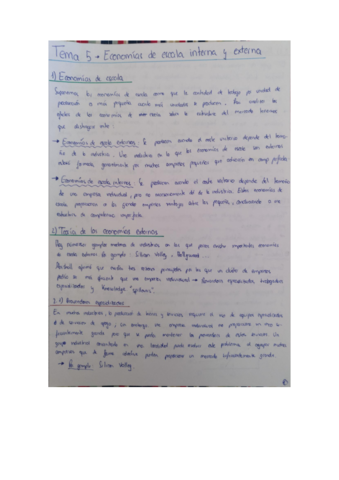 Tema 5 → Economías de escala interna y externa
1) Economías de escala
Suponemos las economías de escala como que la cantidad de trabajo por unidad de
producción es más pequeña cuanto más unidades a producir. Para analizar los
efectos de las economías de escala sobre la estructura del mercado tenemos
que distinguir entre:
→ Economías de escala externas. Se producen cuando el coste unitario depende del tama-
ño de la industria. Una industria en la que las economías de escala son externas
estará formada, generalmente por muchas empresas pequeñas que
→ Economías de escala internas. Se producen cuando el coste unitario depende del tamaño
de una empresa individual, pero no necesariamente del de la industria. Estas economías de
escala proporcionan a las grandes empresas ventajas sobre las pequeñas,
estructura de competencia imperfecta.
2) Teoría de las economías externas
Hay numerosos ejemplos modernos de industrias en las que parece haber importantes economías
de escala externas. Por ejemplo: Silicon Valley, Hollywood...
Marshall afirmó que existen tres razones principales por las que un clúster de empresas
podía ser más eficiente que una empresa individual → Proveedores especializados, trabajadores
especializados y knowledge "spillovers".
2.1) Proveedores especializados
En muchas industrias, la producción de bienes y servicios requiere el uso de equipos especializados
o de servicios de apoyo; sin embargo una empresa individual no proporciona un mercado lo
suficientemente grande para que se pueda mantener los proveedores de estos servicios. Un
grupo industrial concentrado en una localidad puede resolver este problema al agrupar muchas
empresas que de forma colectiva pueden proporcionar un mercado suficientemente grande.
→ Por ejemplo: Silicon Valley